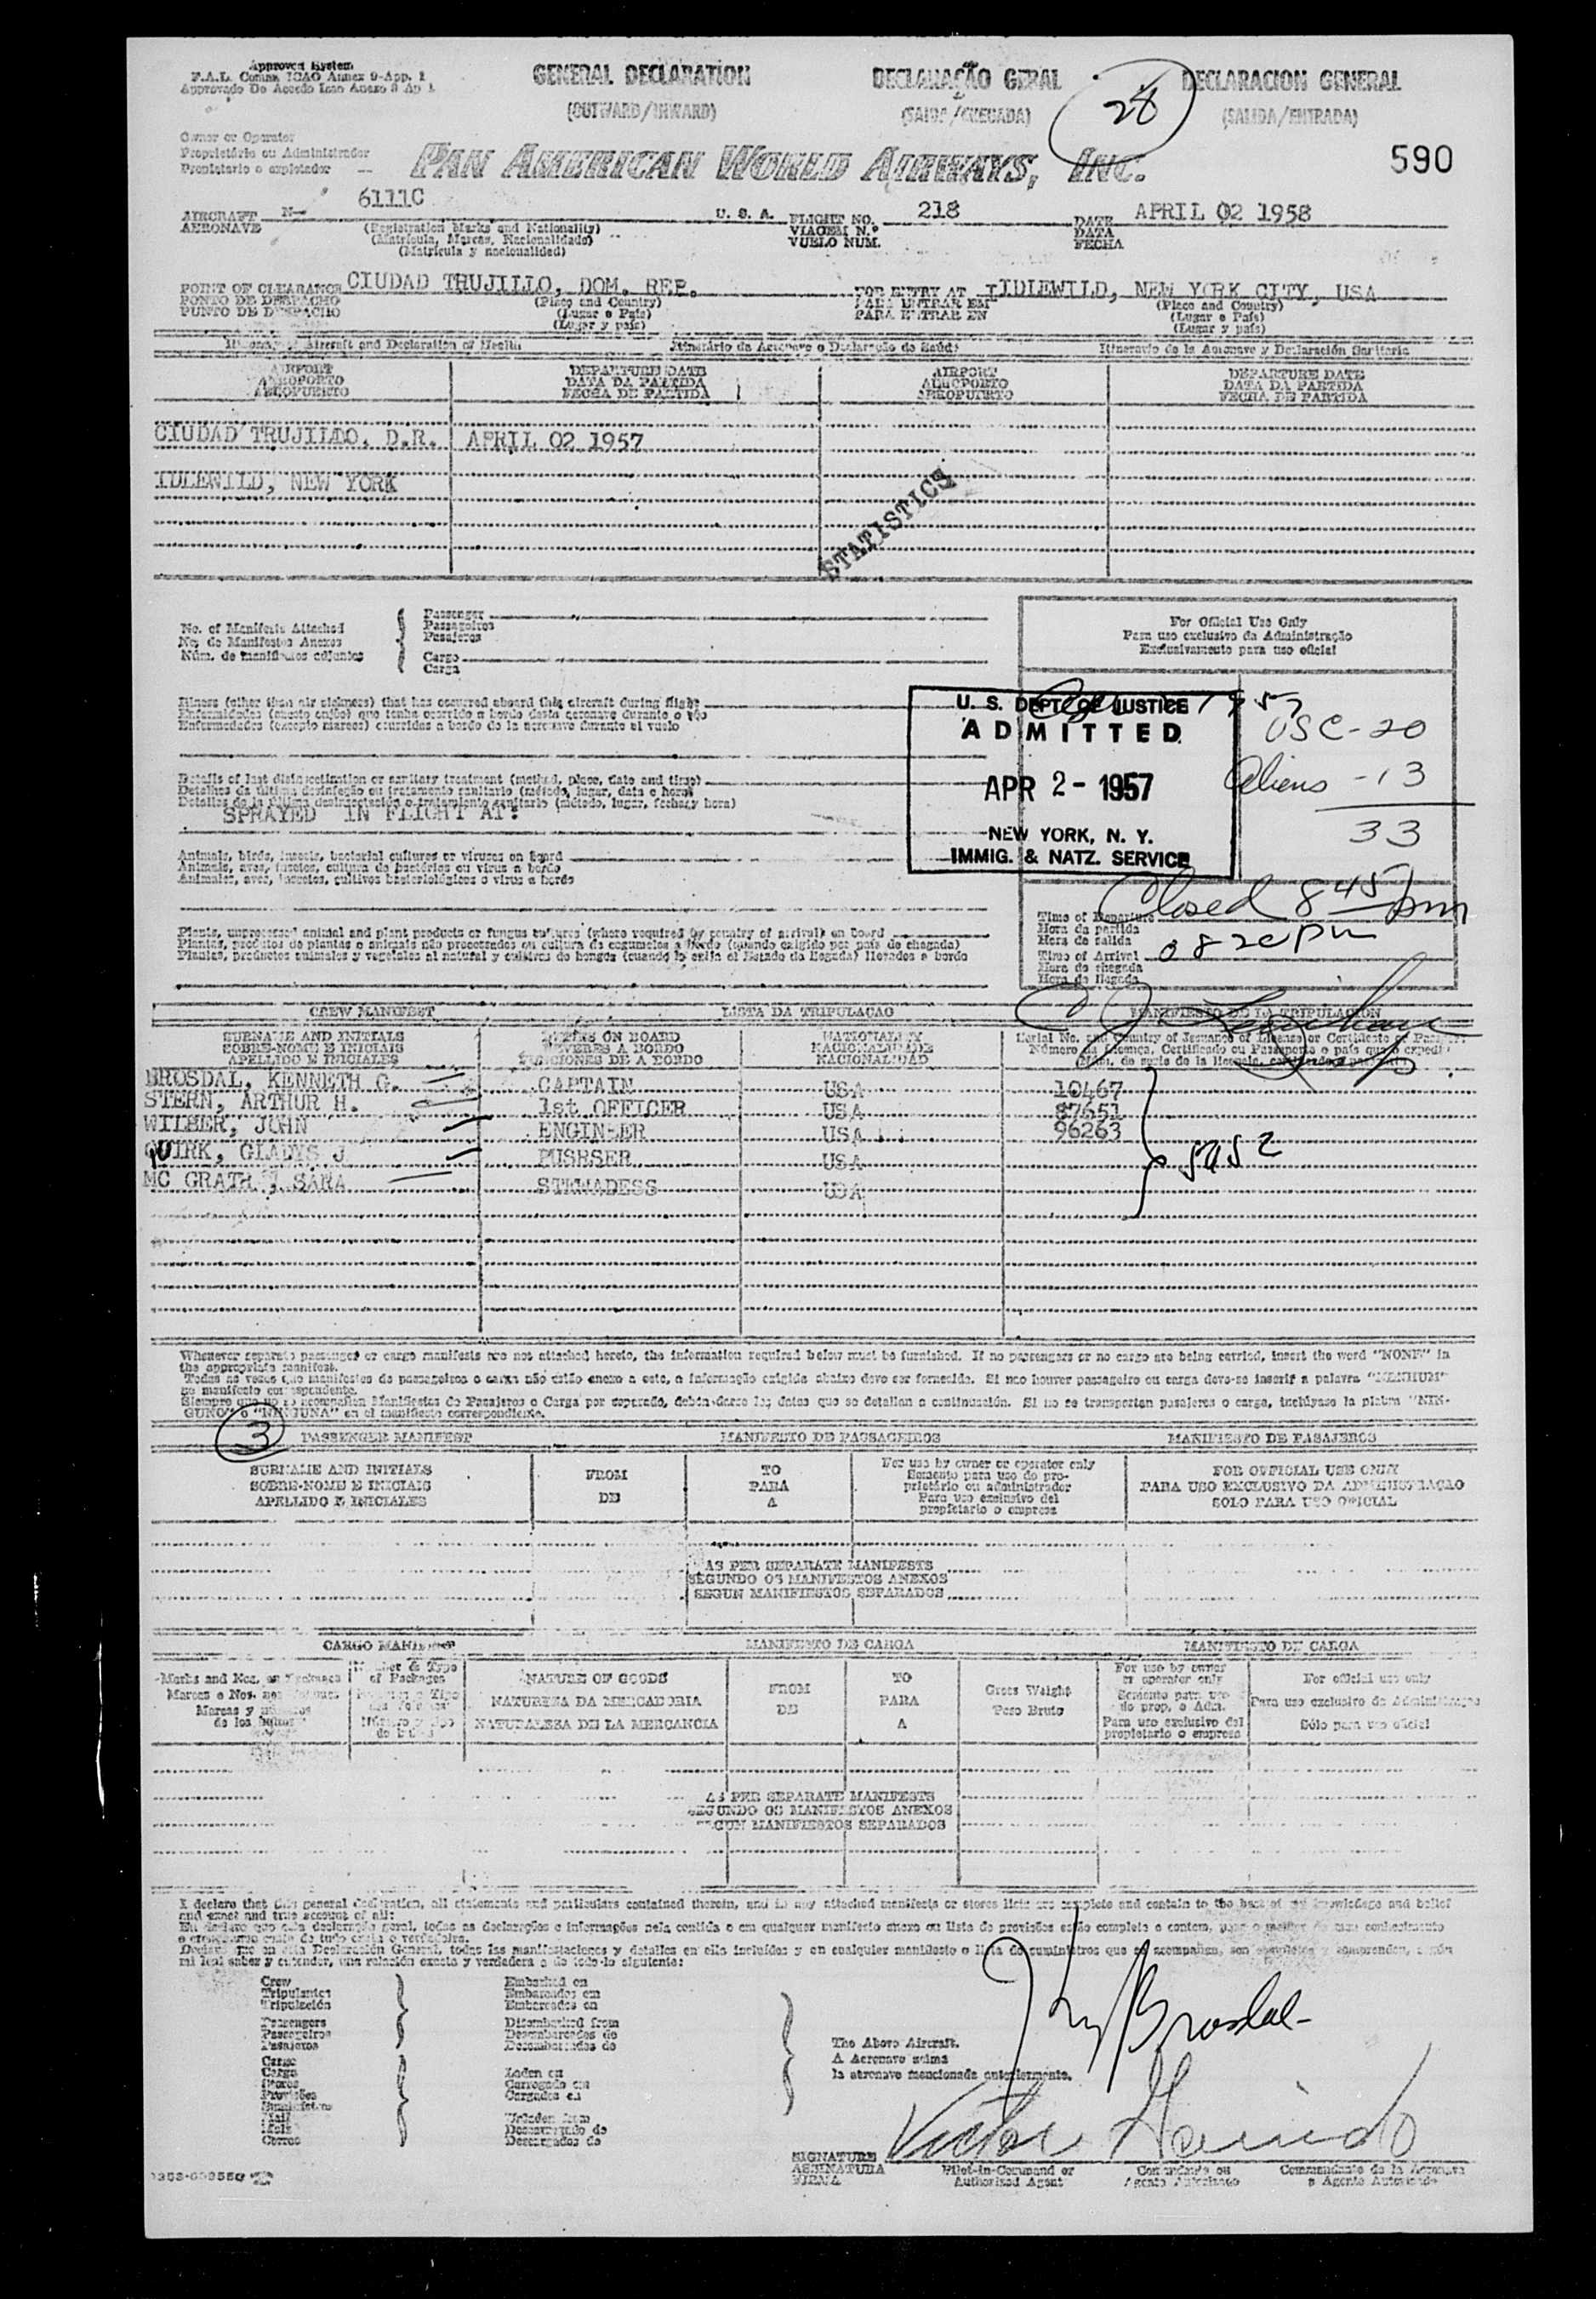 Approved System
F.A.L. Comm. ICAO Annex 9-App. 1
Approvado De Acordo Icao Anexo 9 Ap 1
GENERAL DECLARATION
(OUTWARD/INWARD)
DECLARAÇÃO GERAL
(SAIDA/CHEGADA)
28
DECLARACION GENERAL
(SALIDA/ENTRADA)
Owner or Operator
Proprietário ou Administrador
Propietario o explotador
PAN AMERICAN WORLD AIRWAYS, INC.
590
AIRCRAFT N- 6111C U. S. A. FLIGHT NO. 218 DATE APRIL 02 1958
AERONAVE (Registration Marks and Nationality) VIAGEM N.º DATA
(Matrícula, Marcas, Nacionalidade) VUELO NUM. FECHA
(Matrícula y nacionalidad)
POINT OF CLEARANCE CIUDAD TRUJILLO, DOM. REP. FOR ENTRY AT IIDLEWILD, NEW YORK CITY, USA
PONTO DE DESPACHO (Place and Country) PARA ENTRAR EM (Place and Country)
PUNTO DE DESPACHO (Lugar e País) PARA ENTRAR EN (Lugar e País)
(Lugar y país) (Lugar y país)
Itinerary of Aircraft and Declaration of Health Itinerário da Aeronave e Declaração de Saúde Itinerario de la Aeronave y Declaración Sanitaria
AIRPORT DEPARTURE DATE AIRPORT DEPARTURE DATE
AEROPORTO DATA DA PARTIDA AEROPORTO DATA DA PARTIDA
AEROPUERTO FECHA DE PARTIDA AEROPUERTO FECHA DE PARTIDA
CIUDAD TRUJILLO, D.R. APRIL 02 1957
IDLEWILD, NEW YORK
STATISTICS
No. of Manifests Attached
No. de Manifestos Anexos
Núm. de manifiestos adjuntos
Passenger
Passageiros
Pasajeros
Cargo
Carga
For Official Use Only
Para uso exclusivo da Administração
Exclusivamente para uso oficial
Illness (other than air sickness) that has occurred aboard this aircraft during flight
Enfermidades (exceto enjôo) que tenha ocorrido a bordo desta aeronave durante o vôo
Enfermedades (excepto mareos) ocurridas a bordo de la aeronave durante el vuelo
U. S. DEPT. OF JUSTICE
ADMITTED
APR 2 - 1957
NEW YORK, N. Y.
IMMIG. & NATZ. SERVICE
USC-20
Aliens -13
33
Details of last disinsectization or sanitary treatment (method, place, date and time)
Detalhes da última desinfeção ou tratamento sanitario (método, lugar, data e hora)
Detalles de la última desinsectación o tratamiento sanitario (método, lugar, fecha y hora)
SPRAYED IN FLIGHT AT:
Animals, birds, insects, bacterial cultures or viruses on board
Animais, aves, insetos, cultura de bactérias ou virus a bordo
Animales, aves, insectos, cultivos bacteriológicos o virus a bordo
Closed 8 45 pm
Plants, unprocessed animal and plant products or fungus cultures (where required by country of arrival) on board
Plantas, produtos de plantas e animais não processados ou cultura de cogumelos a bordo (quando exigido por pais de chegada)
Plantas, productos animales y vegetales al natural y cultivos de hongos (cuando lo exija el Estado de llegada) llevados a bordo
Time of Departure
Hora da partida
Hora de salida
Time of Arrival 0820 pm
Hora da chegada
Hora de llegada
CREW MANIFEST LISTA DA TRIPULAÇAO MANIFIESTO DE LA TRIPULACION
SURNAME AND INITIALS DUTIES ON BOARD NATIONALITY Serial No. and Country of Issuance of License or Certificate or Passport
SOBRE-NOME E INICIAIS DEVERES A BORDO NACIONALIDADE
APELLIDO E INICIALES FUNCIONES DE A BORDO NACIONALIDAD
BROSDAL, KENNETH G. CAPTAIN USA 10467
STERN, ARTHUR H. 1st OFFICER USA 87651
WILBER, JOHN ENGINEER USA 96263
QUIRK, GLADYS J PUSHSER USA
MC GRATH , SARA STEWADESS USA
Whenever separate passenger or cargo manifests are not attached hereto, the information required below must be furnished. If no passengers or no cargo are being carried, insert the word "NONE" in
the appropriate manifest.
Todas as vezes que manifestos de passageiros o carga não estão anexo a este, a informação exigida abaixo deve ser fornecida. Si nao houver passageiro ou carga deve-se inserir a palavra "NENHUM"
no manifesto correspondente.
Siempre que no se acompañen Manifiestos de Pasajeros o Carga por separado, deben darse los datos que se detallan a continuación. Si no se transportan pasajeros o carga, inclúyase la palabra "NIN-
GUNO" o "NINGUNA" en el manifiesto correspondiente.
3
PASSENGER MANIFEST MANIFESTO DE PASSAGEIROS MANIFIESTO DE PASAJEROS
SURNAME AND INITIALS FROM TO For use by owner or operator only FOR OFFICIAL USE ONLY
SOBRE-NOME E INICIAIS DE PARA Somente para uso do pro- PARA USO EXCLUSIVO DA ADMINISTRAÇAO
APELLIDO E INICIALES A prietário ou administrador SOLO PARA USO OFICIAL
Para uso exclusivo del
propietario o empresa
AS PER SEPARATE MANIFESTS
SEGUNDO OS MANIFESTOS ANEXOS
SEGUN MANIFIESTOS SEPARADOS
CARGO MANIFEST MANIFESTO DE CARGA MANIFIESTO DE CARGA
Marks and Nos. on Packages Number & Type of Packages NATURE OF GOODS FROM TO Gross Weight For use by owner or operator only For official use only
NATUREZA DA MERCADORIA DE PARA Peso Bruto Somente para uso do prop. o Adm. Para uso exclusivo da Administraçao
Marcas y números de los bultos NATURALEZA DE LA MERCANCIA A Para uso exclusivo del propietario o empresa Sólo para uso oficial
AS PER SEPARATE MANIFESTS
SEGUNDO OS MANIFESTOS ANEXOS
SEGUN MANIFIESTOS SEPARADOS
I declare that this general declaration, all statements and particulars contained therein, and in any attached manifests or stores lists are complete and contain to the best of my knowledge and belief
and exact and true account of all:
Crew
Tripulantes
Tripulación
Passengers
Passageiros
Pasajeros
Cargo
Carga
Stores
Provisões
Suministros
Mail
Mala
Correo
Embarked on
Embarcados em
Embarcados en
Disembarked from
Desembarcados de
Desembarcados de
Laden on
Carregado em
Cargados en
Unladen from
Descarregado de
Descargados de
The Above Aircraft.
A Aeronave acima
la aeronave mencionada anteriormente.
Brosdal
Victor
SIGNATURE
ASSINATURA
FIRMA
Pilot-in-Command or
Authorized Agent
Comandante ou
Agente Autorizado
Commandante de la Aeronave
o Agente Autorizado